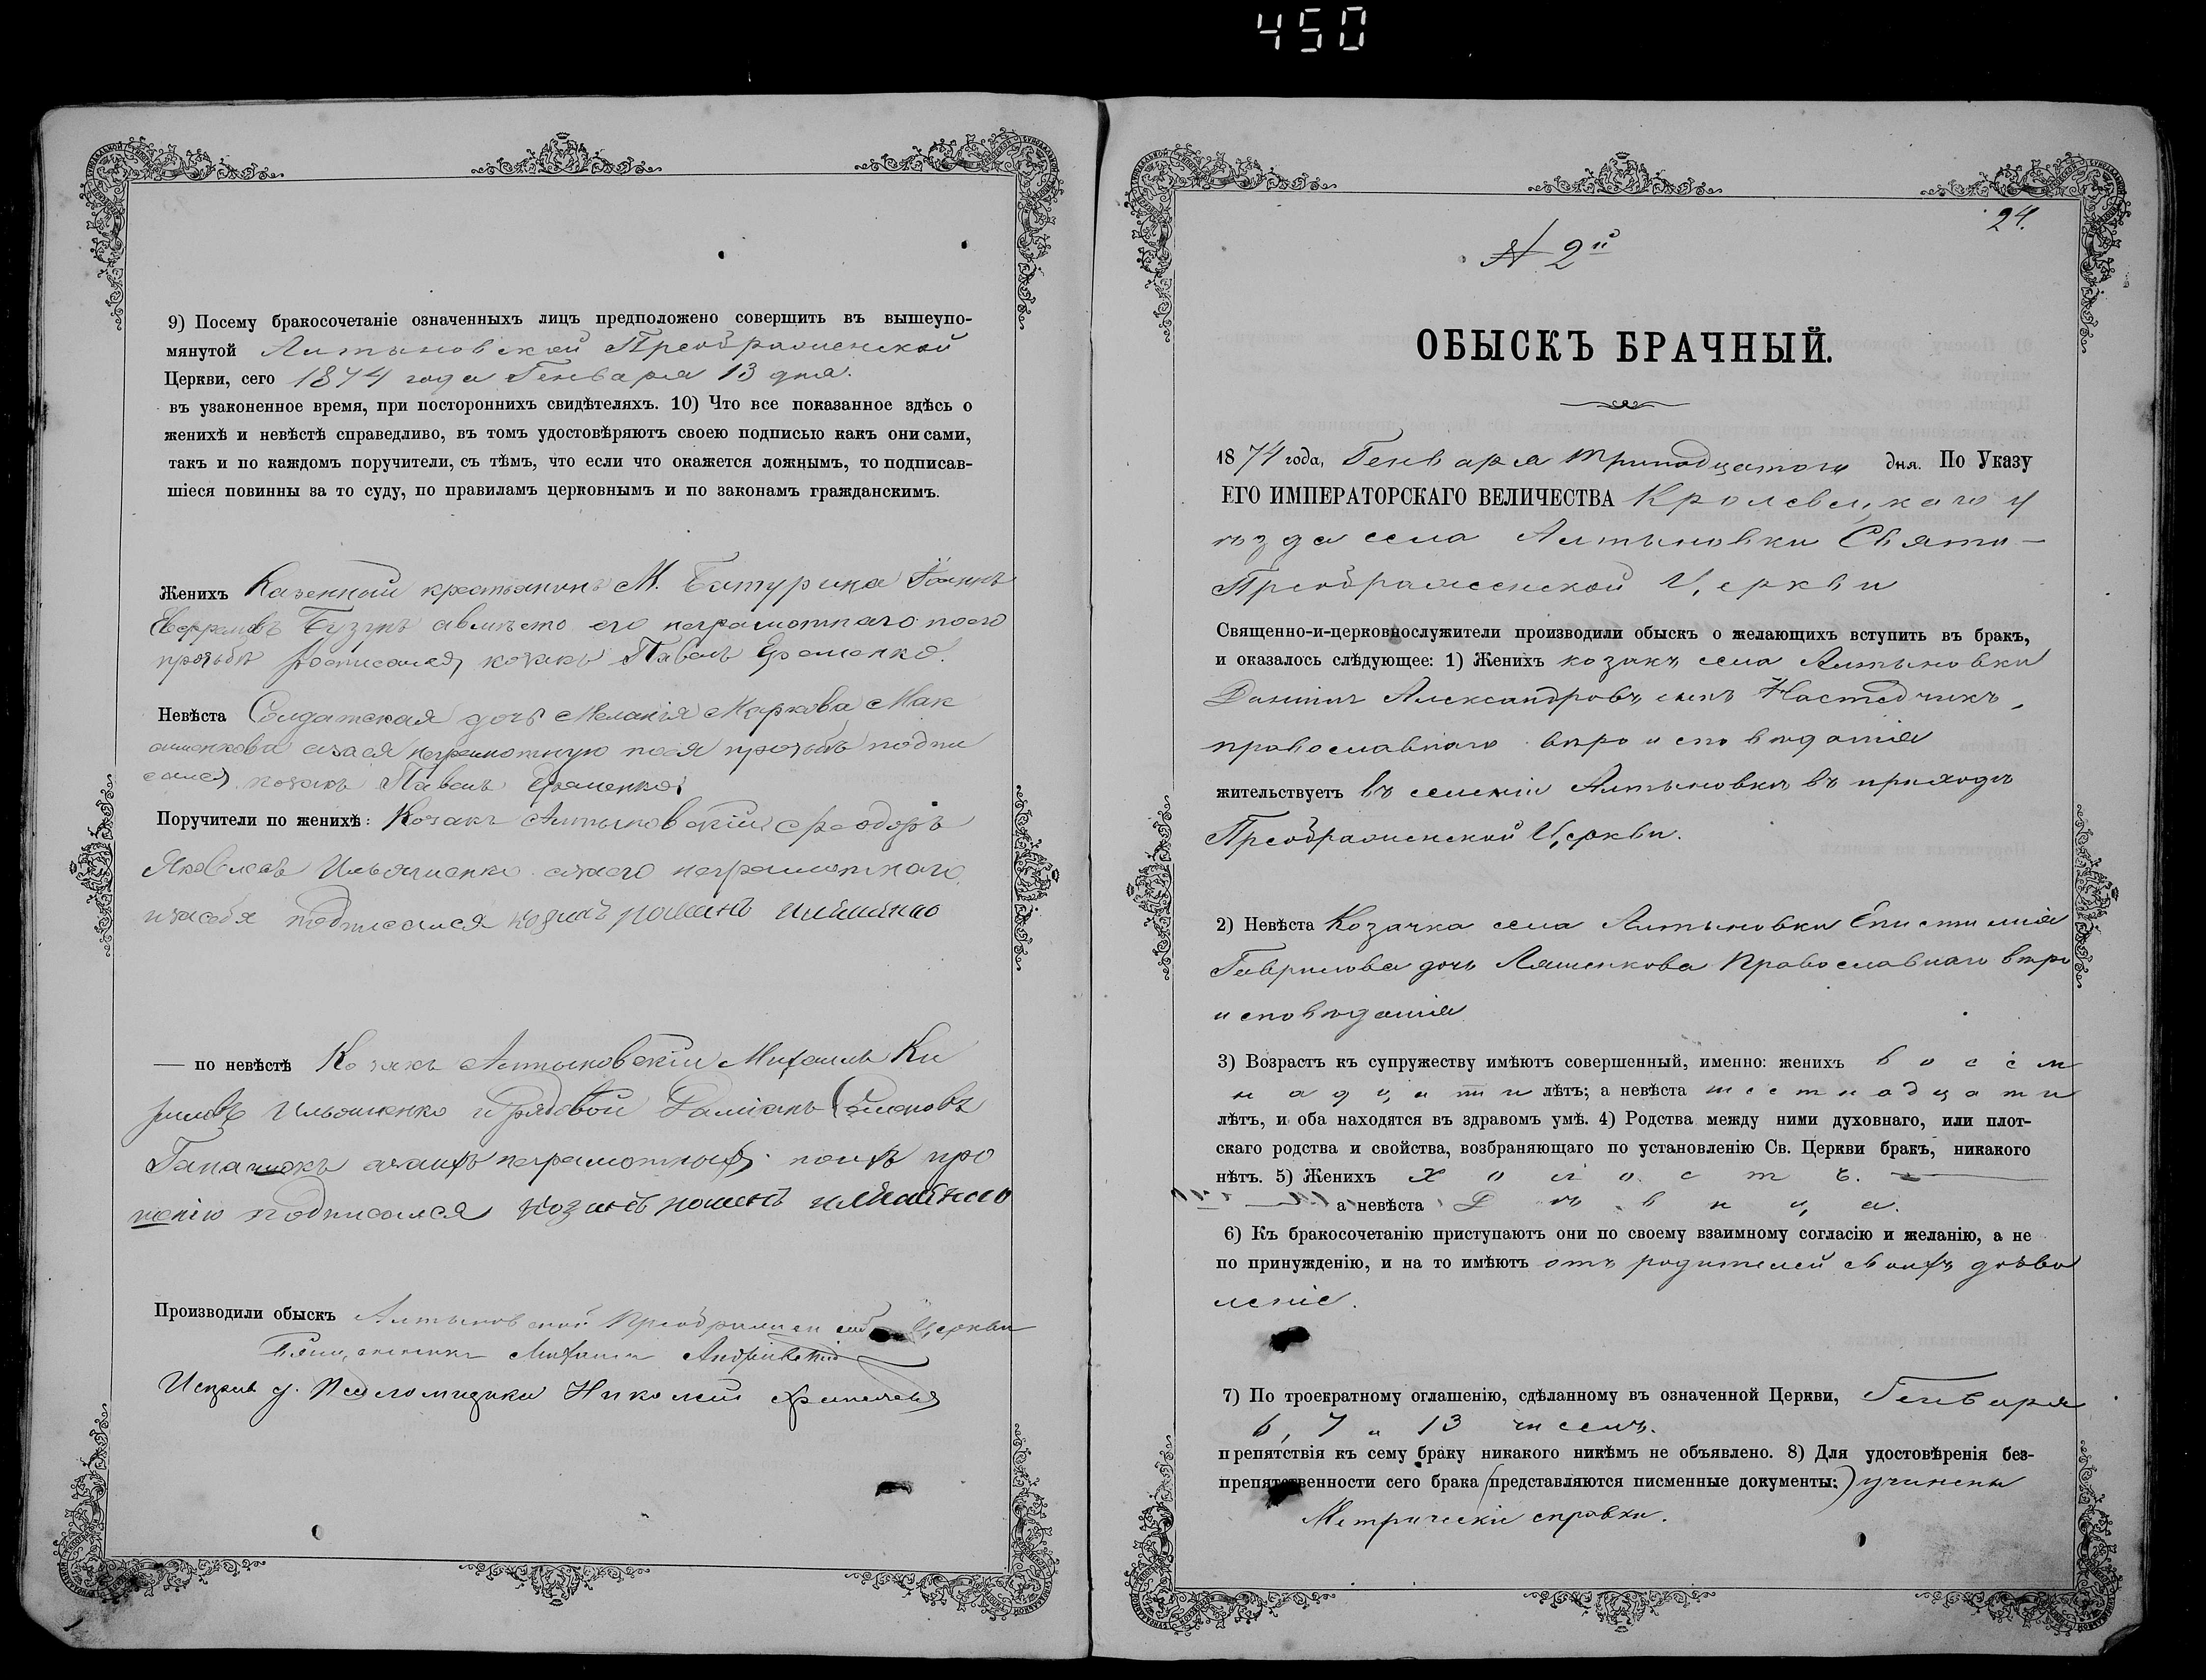 450
9) Посему бракосочетаніе означенныхъ лицъ предположено совершить въ вышеупо-
мянутой Алтыновской Преображенской
Церкви, сего 1874 года Генваря 13 дня.
въ узаконенное время, при постороннихъ свидѣтеляхъ. 10) Что все показанное здѣсь о
женихѣ и невѣстѣ справедливо, въ томъ удостовѣряютъ своею подписью какъ они сами,
такъ и по каждомъ поручители, съ тѣмъ, что если что окажется ложнымъ, то подписав-
шіеся повинны за то суду, по правиламъ церковнымъ и по законамъ гражданскимъ.
Женихъ Казенный крестьянинъ М. Батурина
Бузунъ авмѣсто его неграмотнаго поего
прозьбѣ росписался козакъ Павелъ Ераменко.
Невѣста Солдатская дочь Меланія Маркова Мак
сименкова азася неграмотную поея прозьбѣ подпи
сался козакъ Павелъ Ераменко
Поручители по женихѣ: Козакъ Алтыновскій Феодоръ
Яковлевъ Ильяшенко азаего неграмотнаго
изасебя подписался козакъ романъ илляшенко
— по невѣстѣ Козакъ Алтыновскій Михаилъ Ки
риловъ Ильяшенко и рядовой Даміанъ Семеновъ
азанихъ неграмотныхъ поихъ про
шенію подписался козакъ романъ илляшенко
Производили обыскъ Алтыновской Преображенской Церкви
Священникъ Михаилъ Андріевскій
Исправ. д. Псаломщика Николай
24.
№ 2й
ОБЫСКЪ БРАЧНЫЙ.
1874 года, Генваря тринадцатого дня. По Указу
ЕГО ИМПЕРАТОРСКАГО ВЕЛИЧЕСТВА Кролевецкаго у
ѣзда села Алтыновки Свято-
Преображенской Церкви
Священно-и-церковнослужители производили обыскъ о желающихъ вступить въ бракъ,
и оказалось слѣдующее: 1) Женихъ козакъ села Алтыновки
Даніилъ Александровъ сынъ
православнаго вѣроисповѣданія
жительствуетъ въ селеніи Алтыновкѣ въ приходѣ
Преображенской Церкви.
2) Невѣста Козачка села Алтыновки Епистимія
Гаврилова дочь Ляшенкова Православнаго вѣро
исповѣданія
3) Возрастъ къ супружеству имѣютъ совершенный, именно: женихъ восем
надцати лѣтъ; а невѣста шестнадцати
лѣтъ, и оба находятся въ здравомъ умѣ. 4) Родства между ними духовнаго, или плот-
скаго родства и свойства, возбраняющаго по установленію Св. Церкви бракъ, никакого
нѣтъ. 5) Женихъ холостъ.
а невѣста Дѣвица.
6) Къ бракосочетанію приступаютъ они по своему взаимному согласію и желанію, а не
по принужденію, и на то имѣютъ отъ родителей своихъ дозво
леніе.
7) По троекратному оглашенію, сдѣланному въ означенной Церкви, Генваря
6, 7 и 13 чиселъ.
препятствія къ сему браку никакого никѣмъ не объявлено. 8) Для удостовѣренія без-
препятственности сего брака (представляются писменные документы:) учинены
Метрическіе справки.